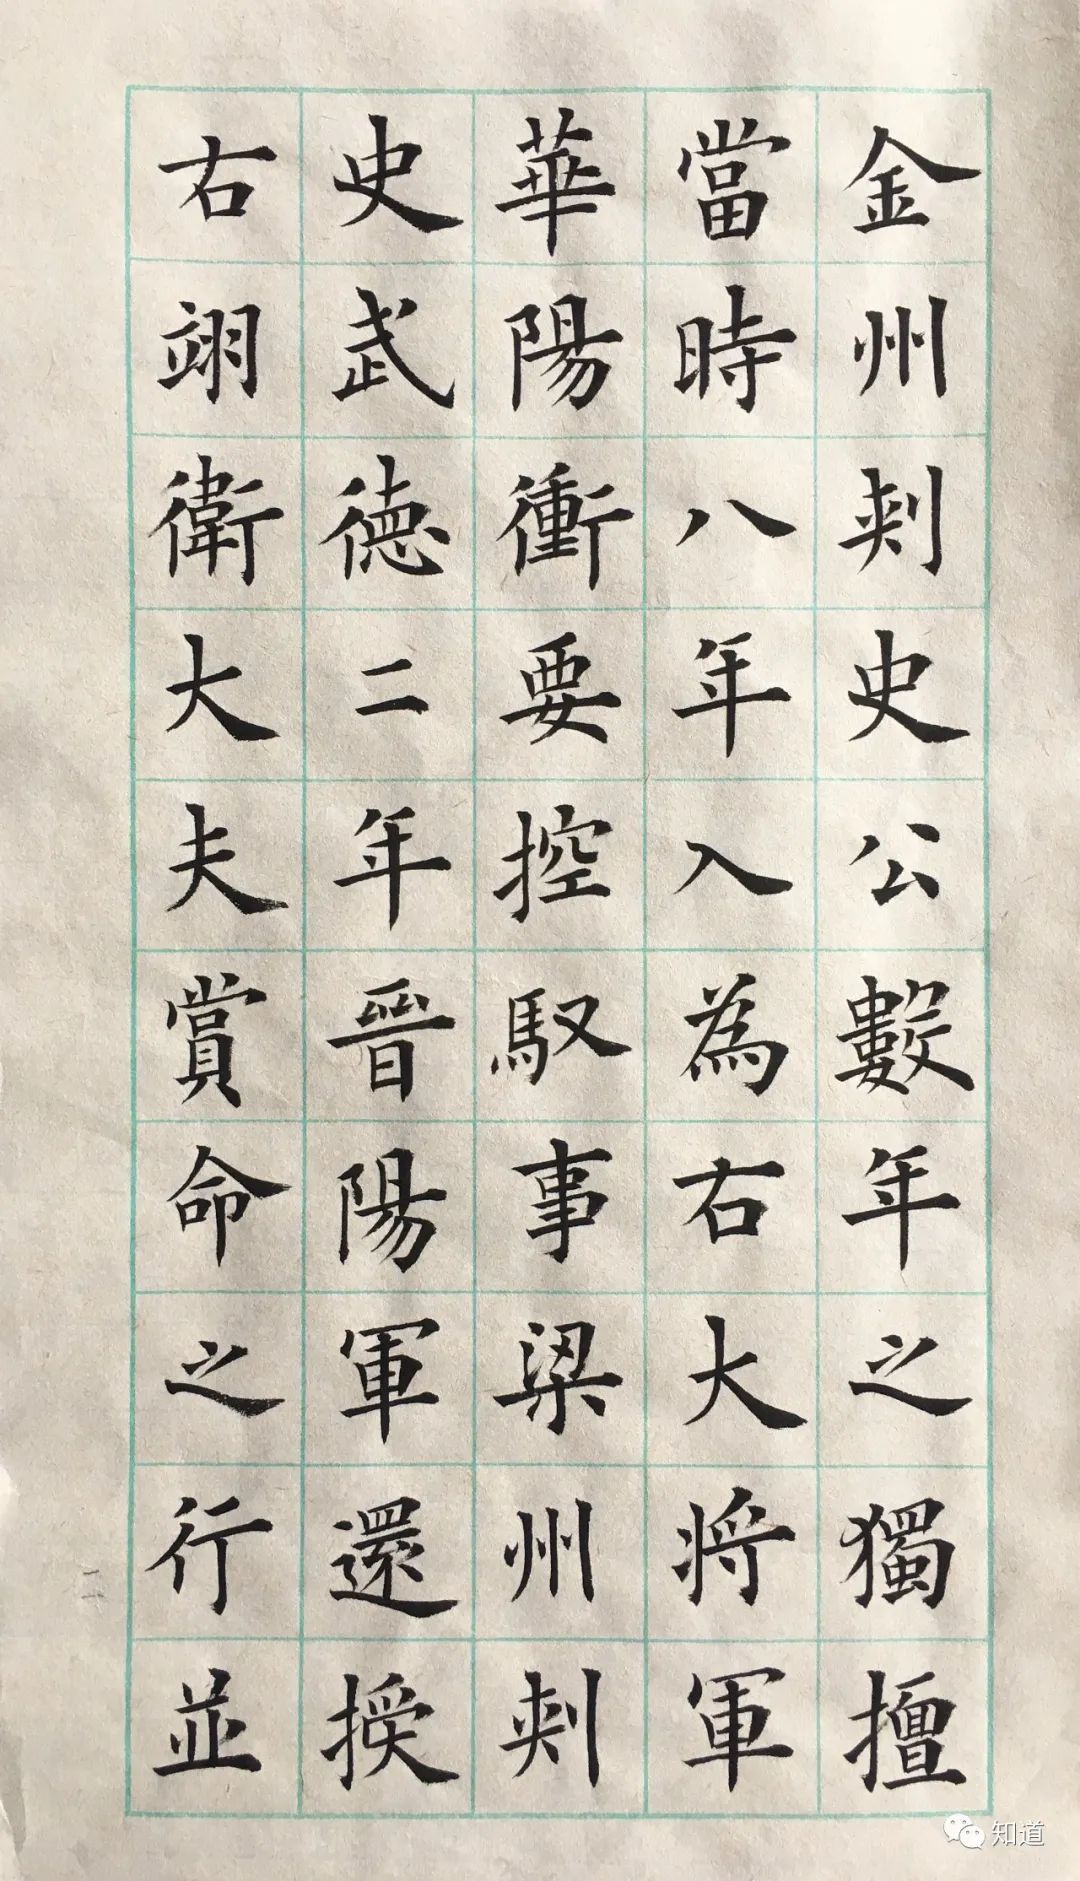 金州刾史公數年之獨擅
當時八年入為右大将軍
華陽衝要控馭事梁州刾
史武德二年晉陽軍還授
右翊衛大夫賞命之行並
二
知道